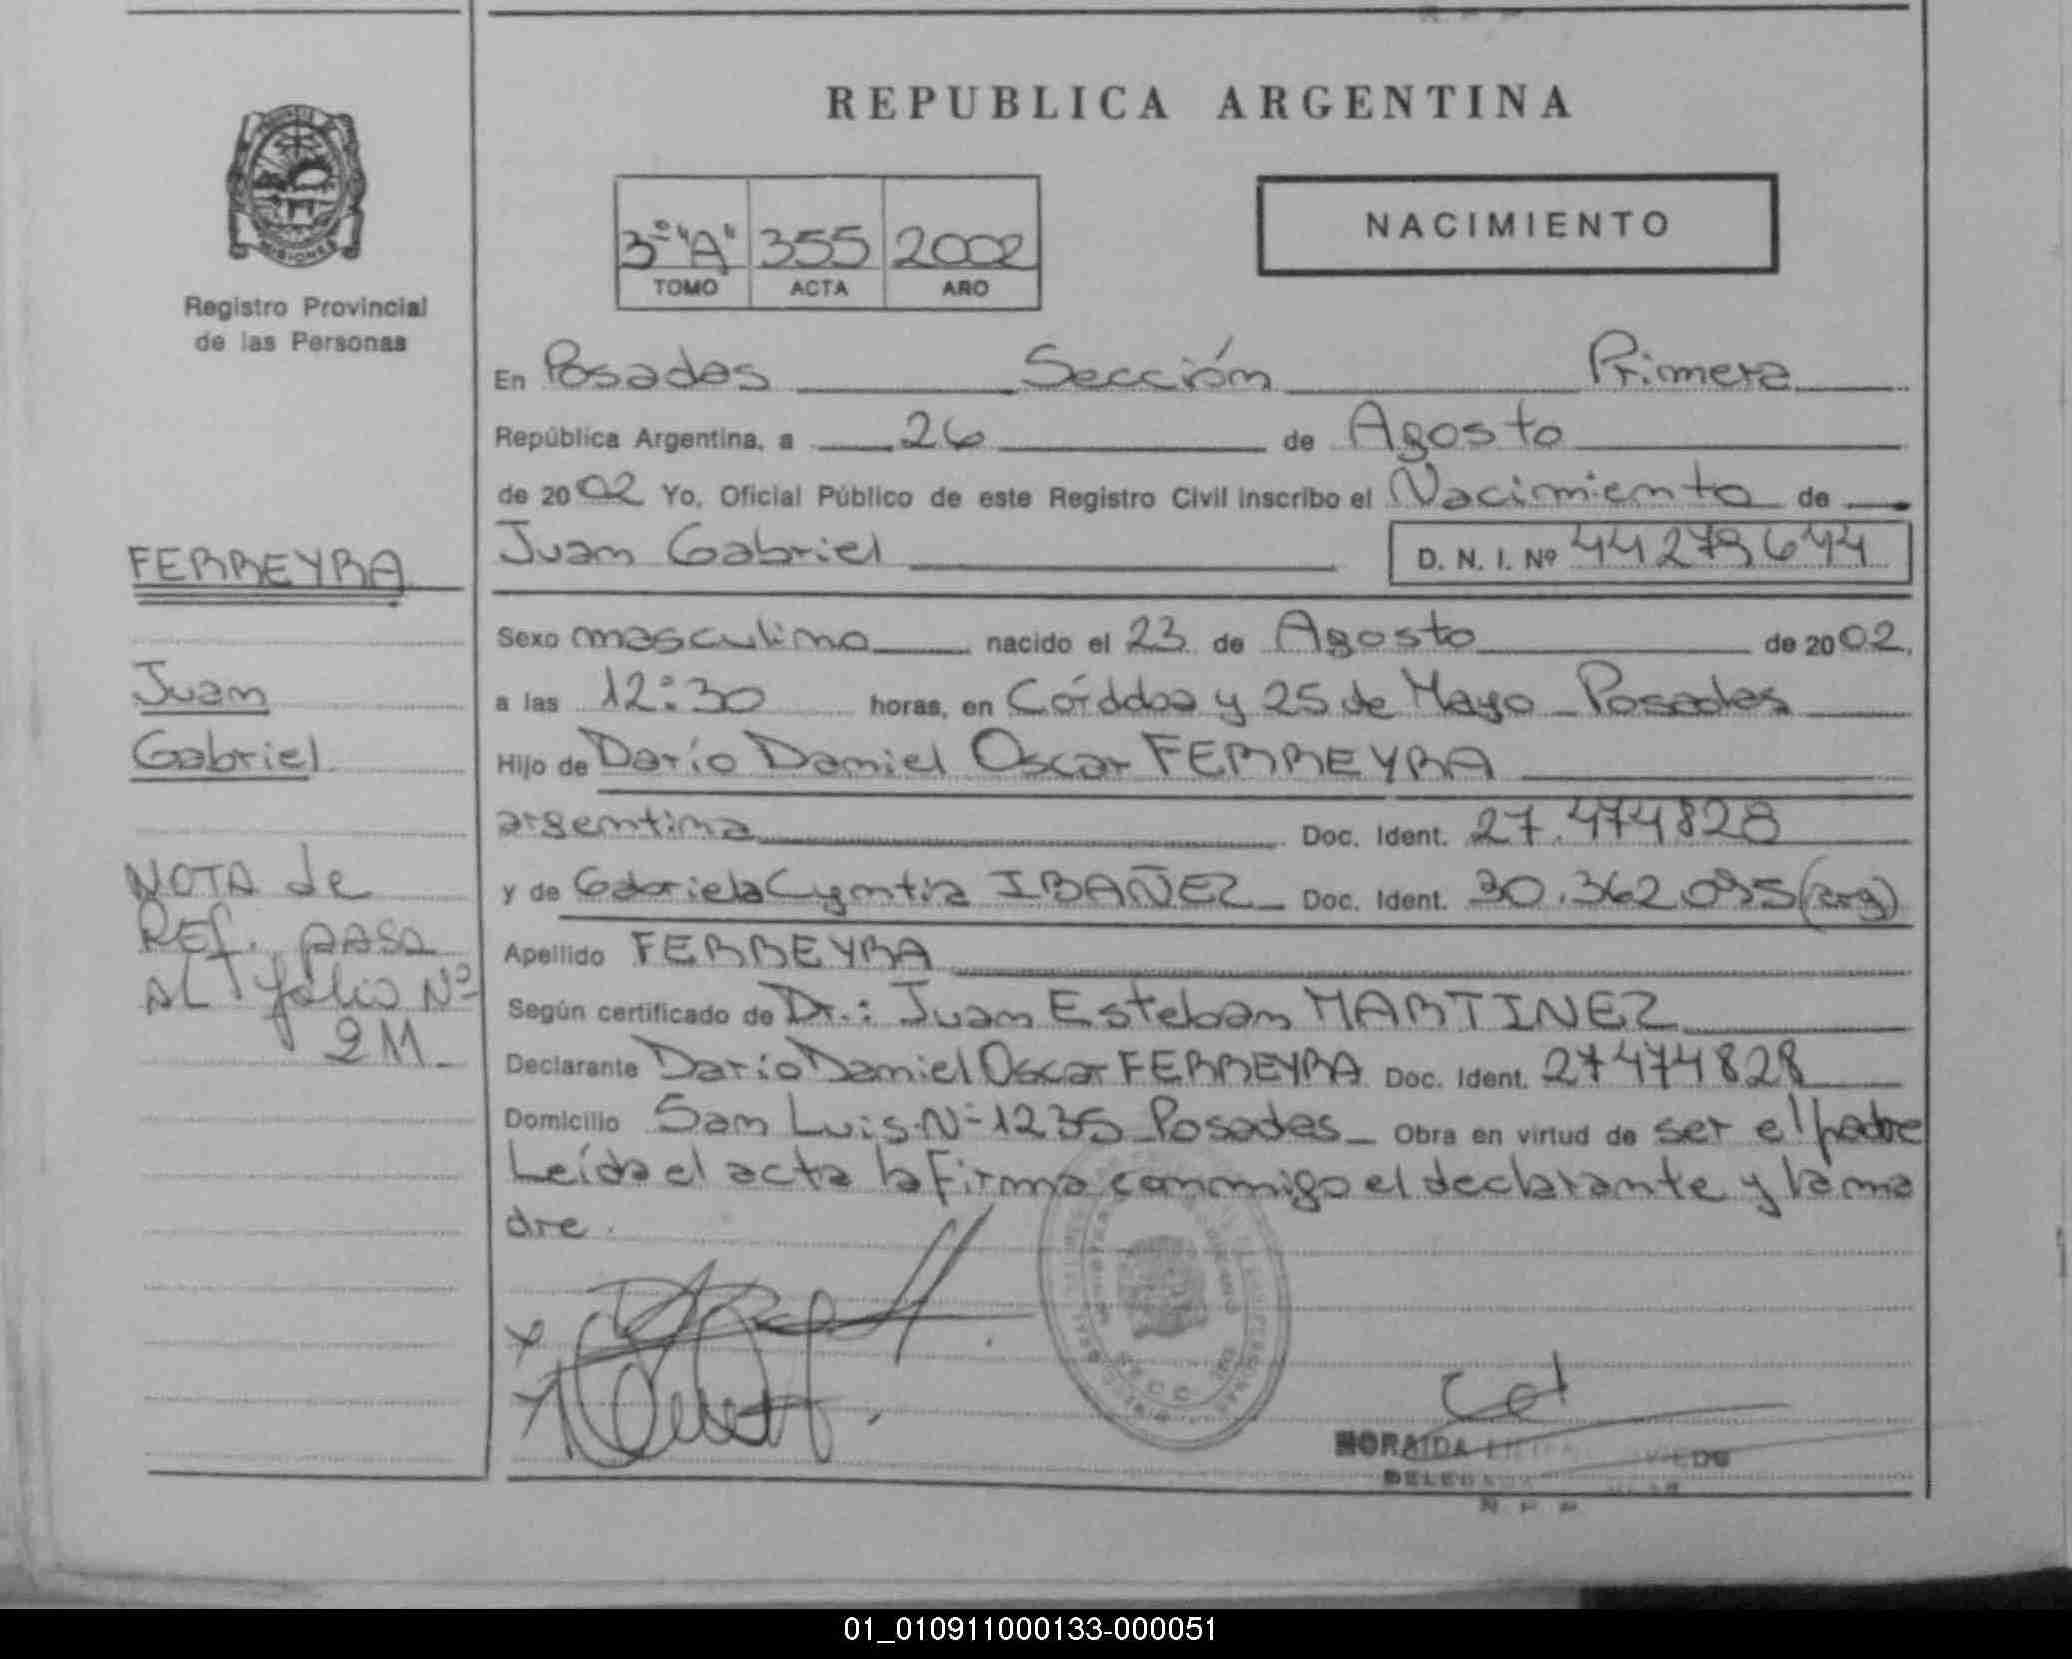 REPUBLICA ARGENTINA
MISIONES
Registro Provincial
de las Personas
3º "A" 355 2002
TOMO ACTA AÑO
NACIMIENTO
En Posadas Sección Primera
República Argentina, a 26 de Agosto
de 2002 Yo, Oficial Público de este Registro Civil inscribo el Nacimiento de
Juan Gabriel D. N. I. Nº 44279644
FERREYRA
Juan
Gabriel
NOTA de
REF. pasa
AL folio Nº
Sexo masculino nacido el 23 de Agosto de 2002.
a las 12:30 horas, en Córdoba y 25 de Mayo _ Posadas
Hijo de Darío Daniel Oscar FERREYRA
argentina Doc. Ident. 27.474828
y de Gabriela Cyntia IBAÑEZ _ Doc. Ident. 30.362.095 (arg)
Apellido FERREYRA
Según certificado de Dr.: Juan Esteban MARTINEZ
Declarante Darío Daniel Oscar FERREYRA Doc. Ident. 27474828
Domicilio San Luis Nº 1235 _ Posadas _ Obra en virtud de ser el padre
Leída el acta la firma conmigo el declarante y la ma
dre.
NORAIDA
R P P
01_010911000133-000051